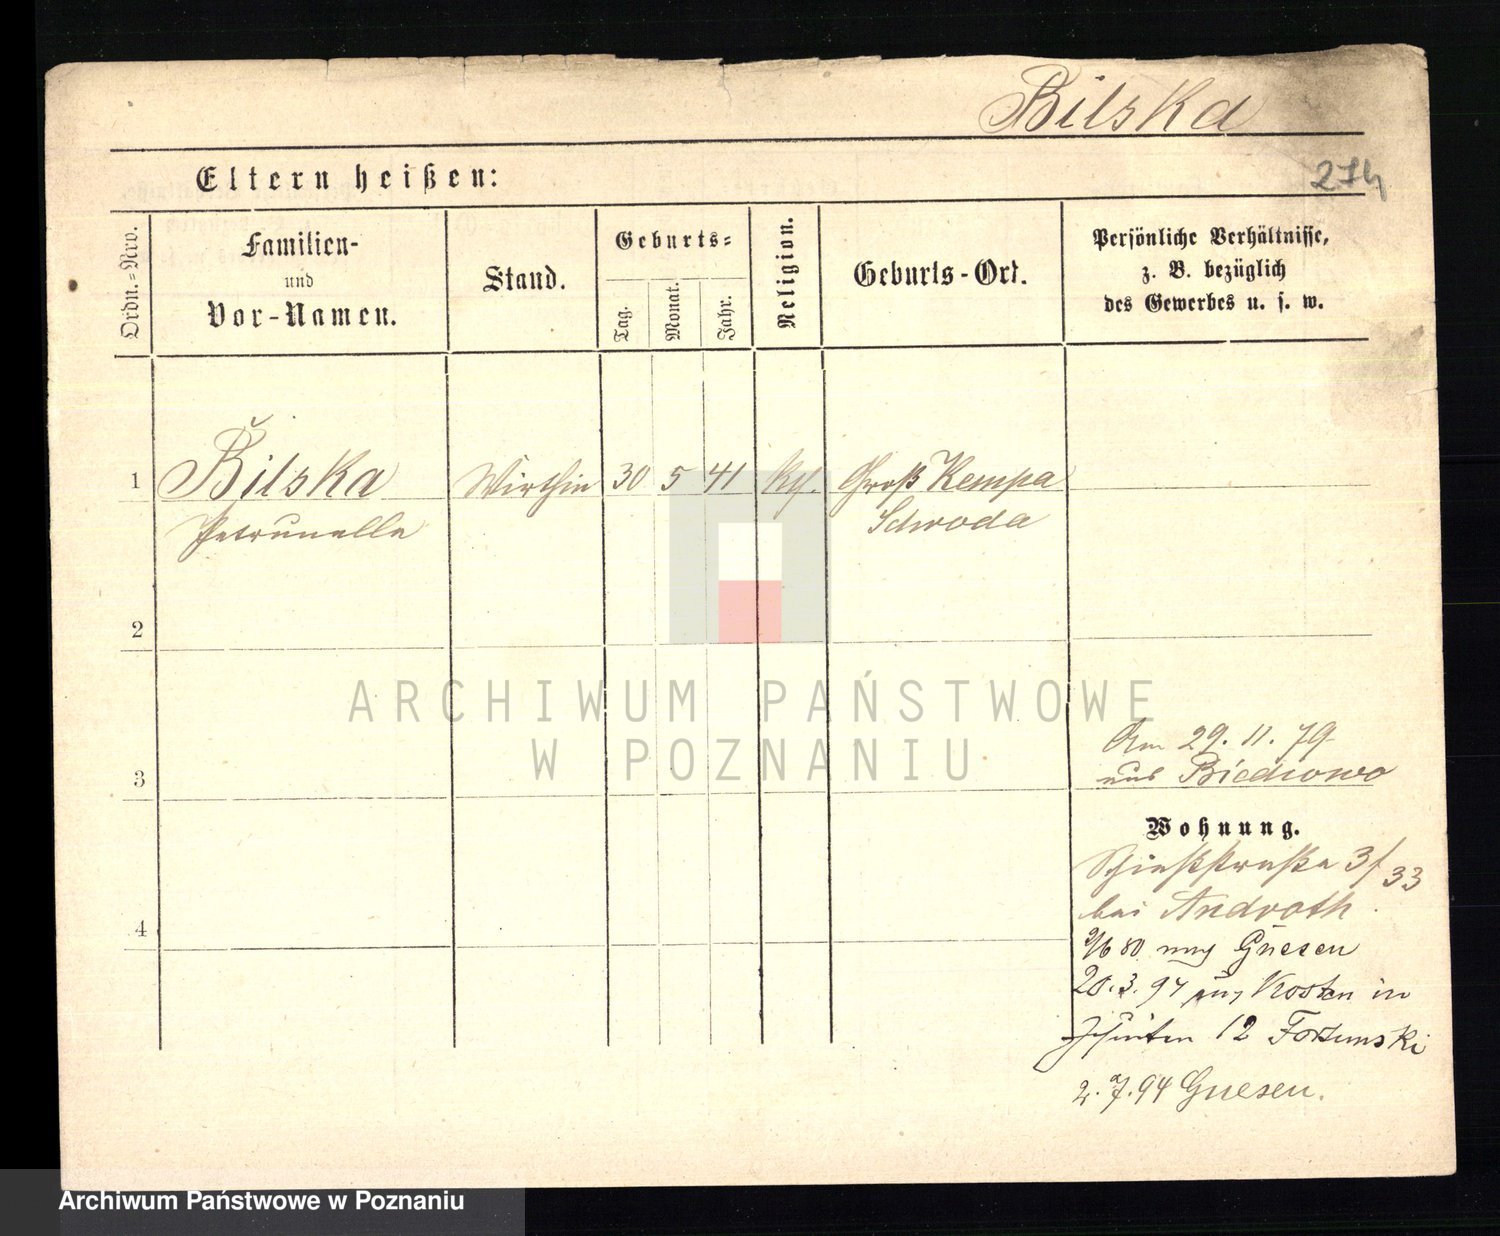 Bilska
Eltern heißen:
274
Ordn.-Nro.
Familien-
und
Vor-Namen.
Stand.
Geburts-
Tag.
Monat.
Jahr.
Religion.
Geburts-Ort.
Persönliche Verhältnisse,
z. B. bezüglich
des Gewerbes u. s. w.
1 Bilska Wirthin 30 5 41 Groß Kempa
Petrunella Schroda
2
ARCHIWUM PAŃSTWOWE
W POZNANIU
Am 29. 11. 79
aus
3
Wohnung.
Schießstraße 3/33
bei Androth
4
80 nach Gnesen
20.3. 94 Kosten in
12
2. 7. 94 Gnesen.
Archiwum Państwowe w Poznaniu